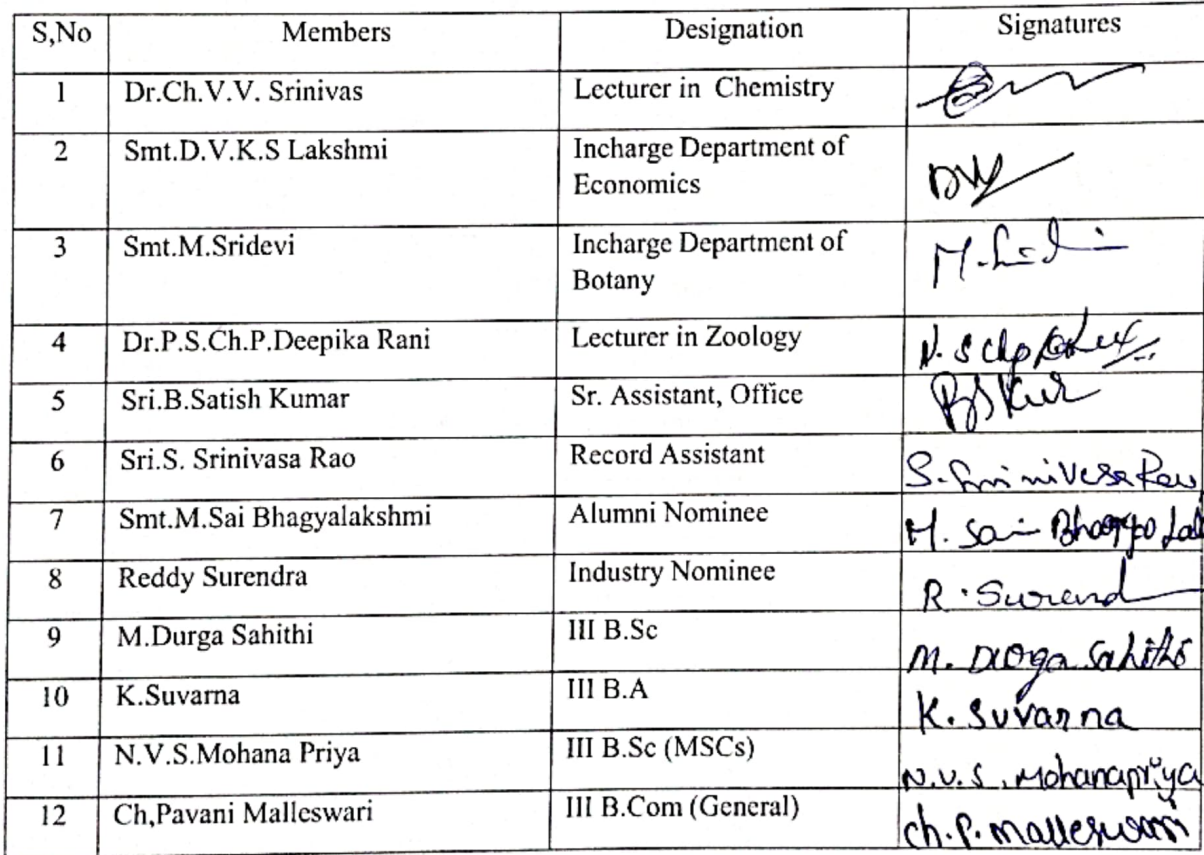 S,No Members Designation Signatures
1 Dr.Ch.V.V. Srinivas Lecturer in Chemistry
2 Smt.D.V.K.S Lakshmi Incharge Department of
Economics
3 Smt.M.Sridevi Incharge Department of
Botany
4 Dr.P.S.Ch.P.Deepika Rani Lecturer in Zoology
5 Sri.B.Satish Kumar Sr. Assistant, Office
6 Sri.S. Srinivasa Rao Record Assistant S. Srinivasa Rao
7 Smt.M.Sai Bhagyalakshmi Alumni Nominee M. Sai
8 Reddy Surendra Industry Nominee R. Surend
9 M.Durga Sahithi III B.Sc M. Durga Sahithi
10 K.Suvarna III B.A K. Suvarna
11 N.V.S.Mohana Priya III B.Sc (MSCs) N.V.S. Mohanapriya
12 Ch,Pavani Malleswari III B.Com (General) Ch. P. Malleswari